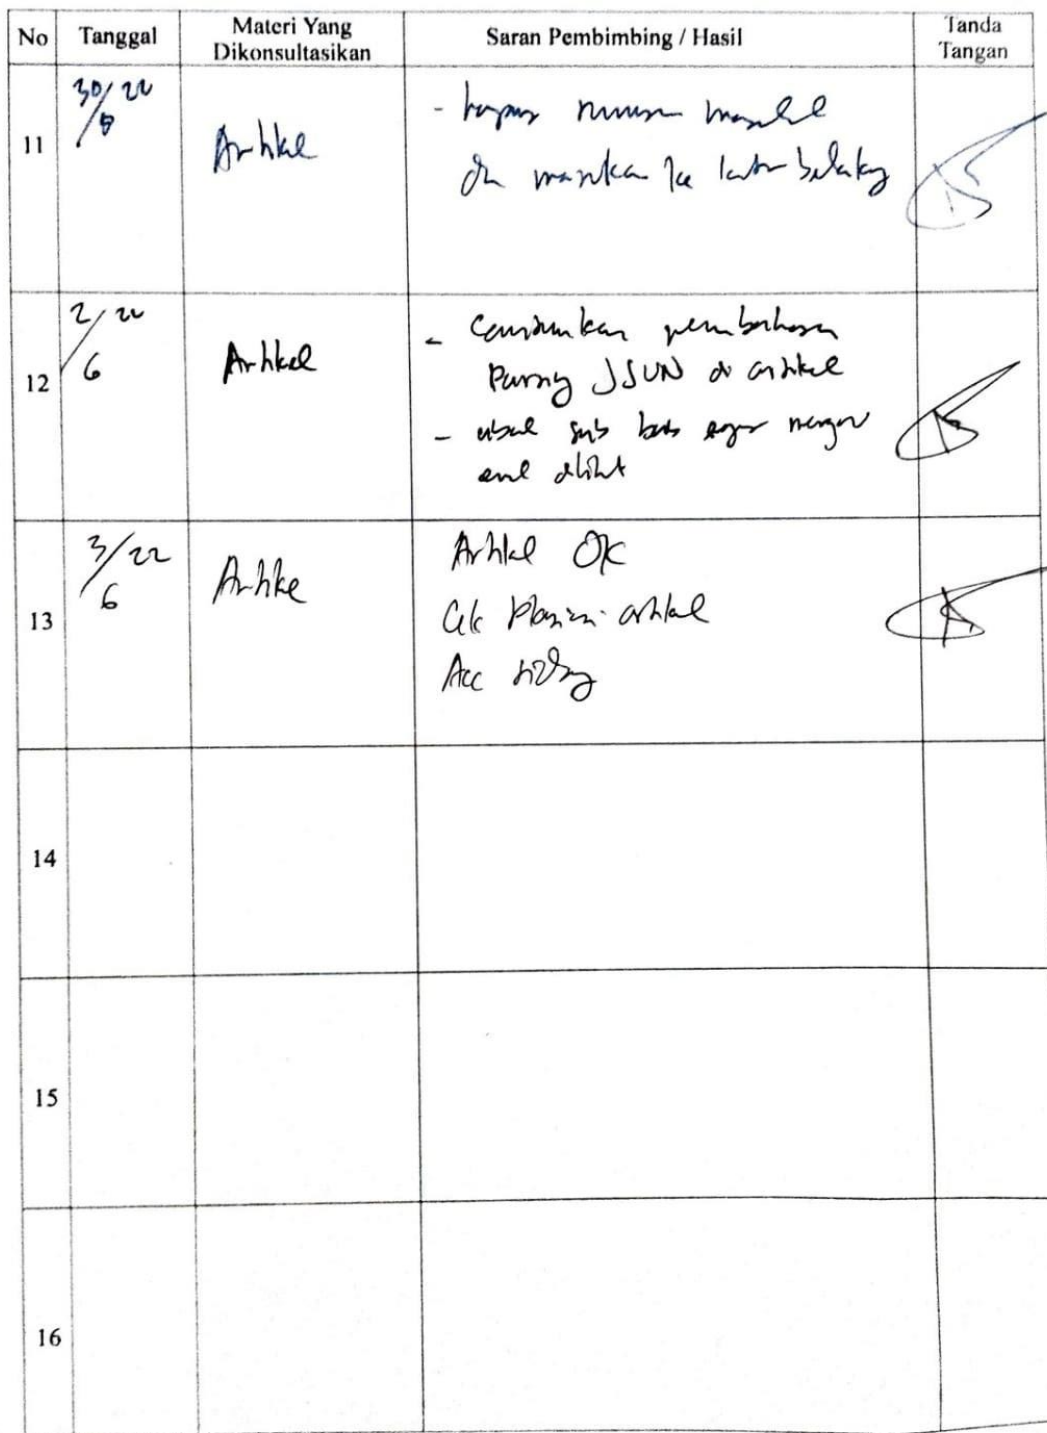 No Tanggal Materi Yang Dikonsultasikan Saran Pembimbing / Hasil Tanda Tangan
11 30/22 Artikel - hapus rumusan masalah
dan masukan ke latar belakang
12 2/22 6 Artikel - Cantumkan pembahasan
Parsing JSON di artikel
- sub bab agar
13 3/22 6 Artikel Artikel OK
Cek artikel
Acc sidang
14
15
16